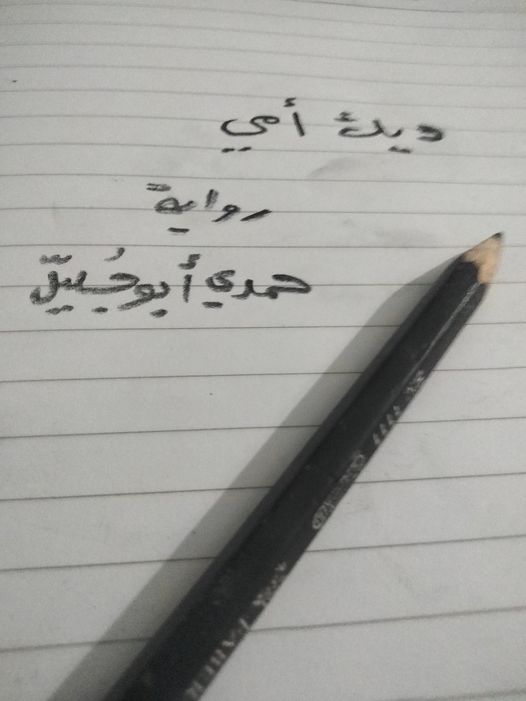 ديك أمي
رواية
حمدي أبو جُليّل